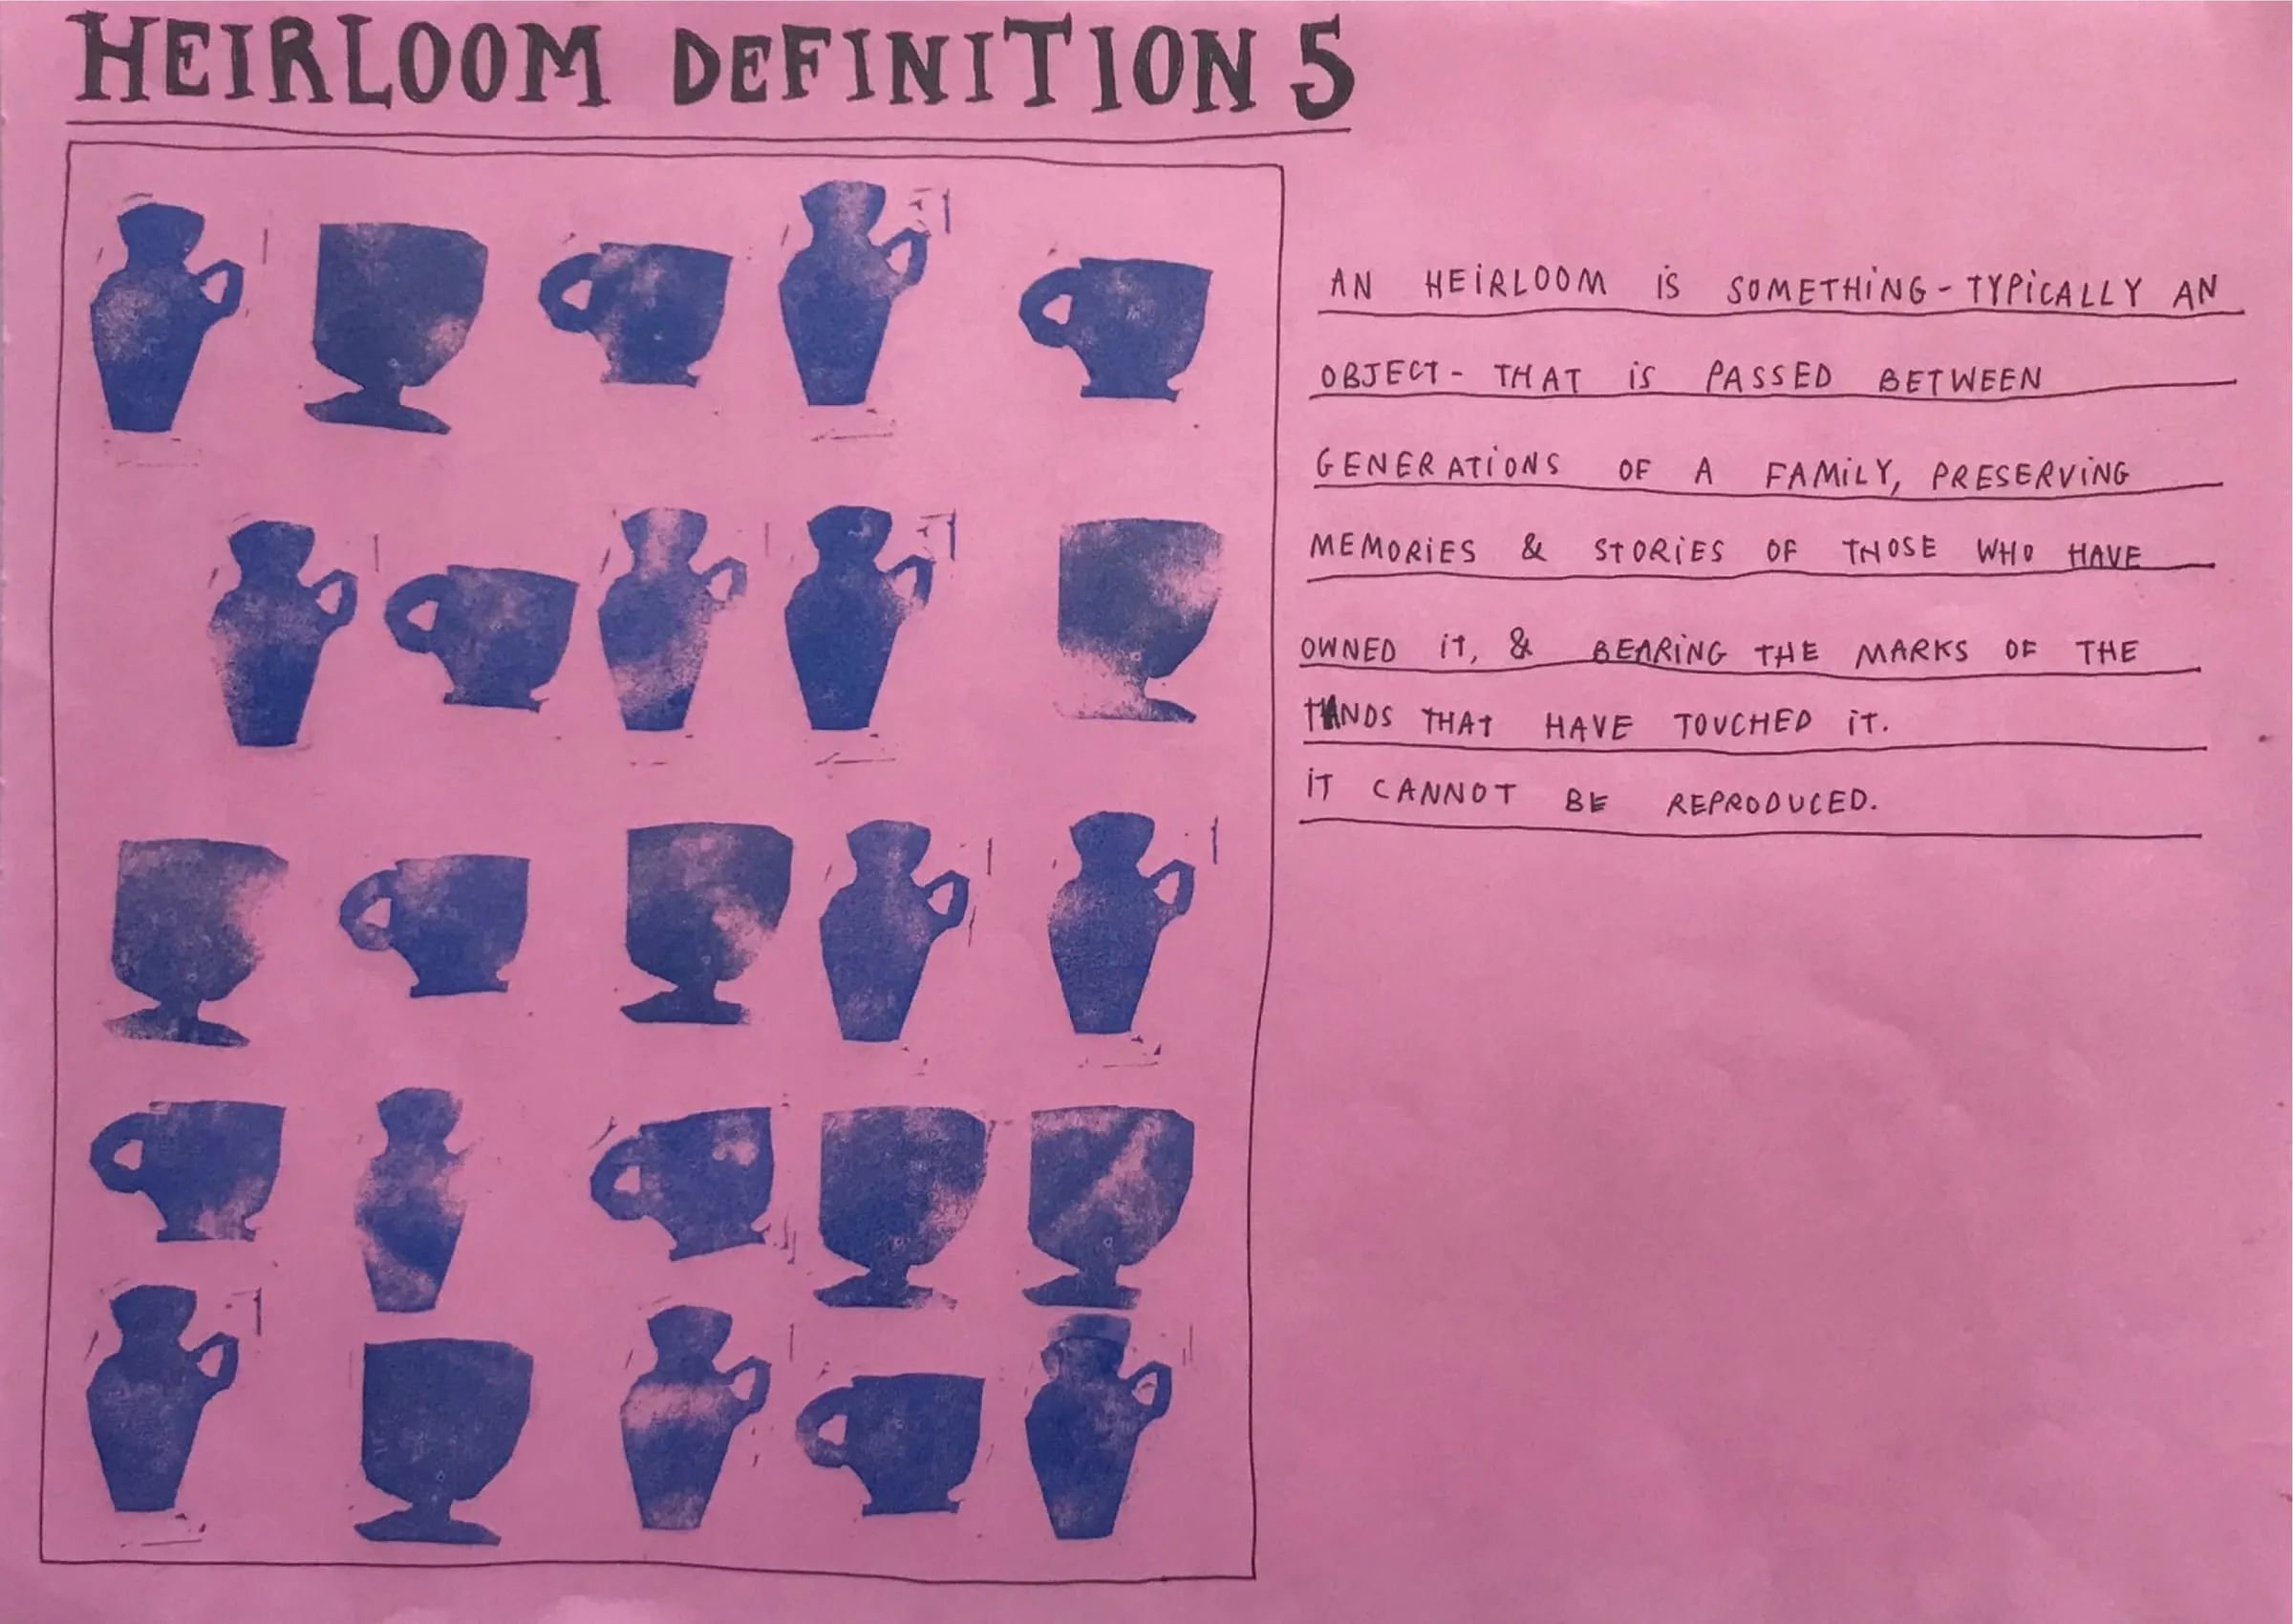 HEIRLOOM DEFINITION 5
AN HEIRLOOM IS SOMETHING - TYPICALLY AN
OBJECT - THAT IS PASSED BETWEEN
GENERATIONS OF A FAMILY, PRESERVING
MEMORIES & STORIES OF THOSE WHO HAVE
OWNED IT, & BEARING THE MARKS OF THE
HANDS THAT HAVE TOUCHED IT.
IT CANNOT BE REPRODUCED.